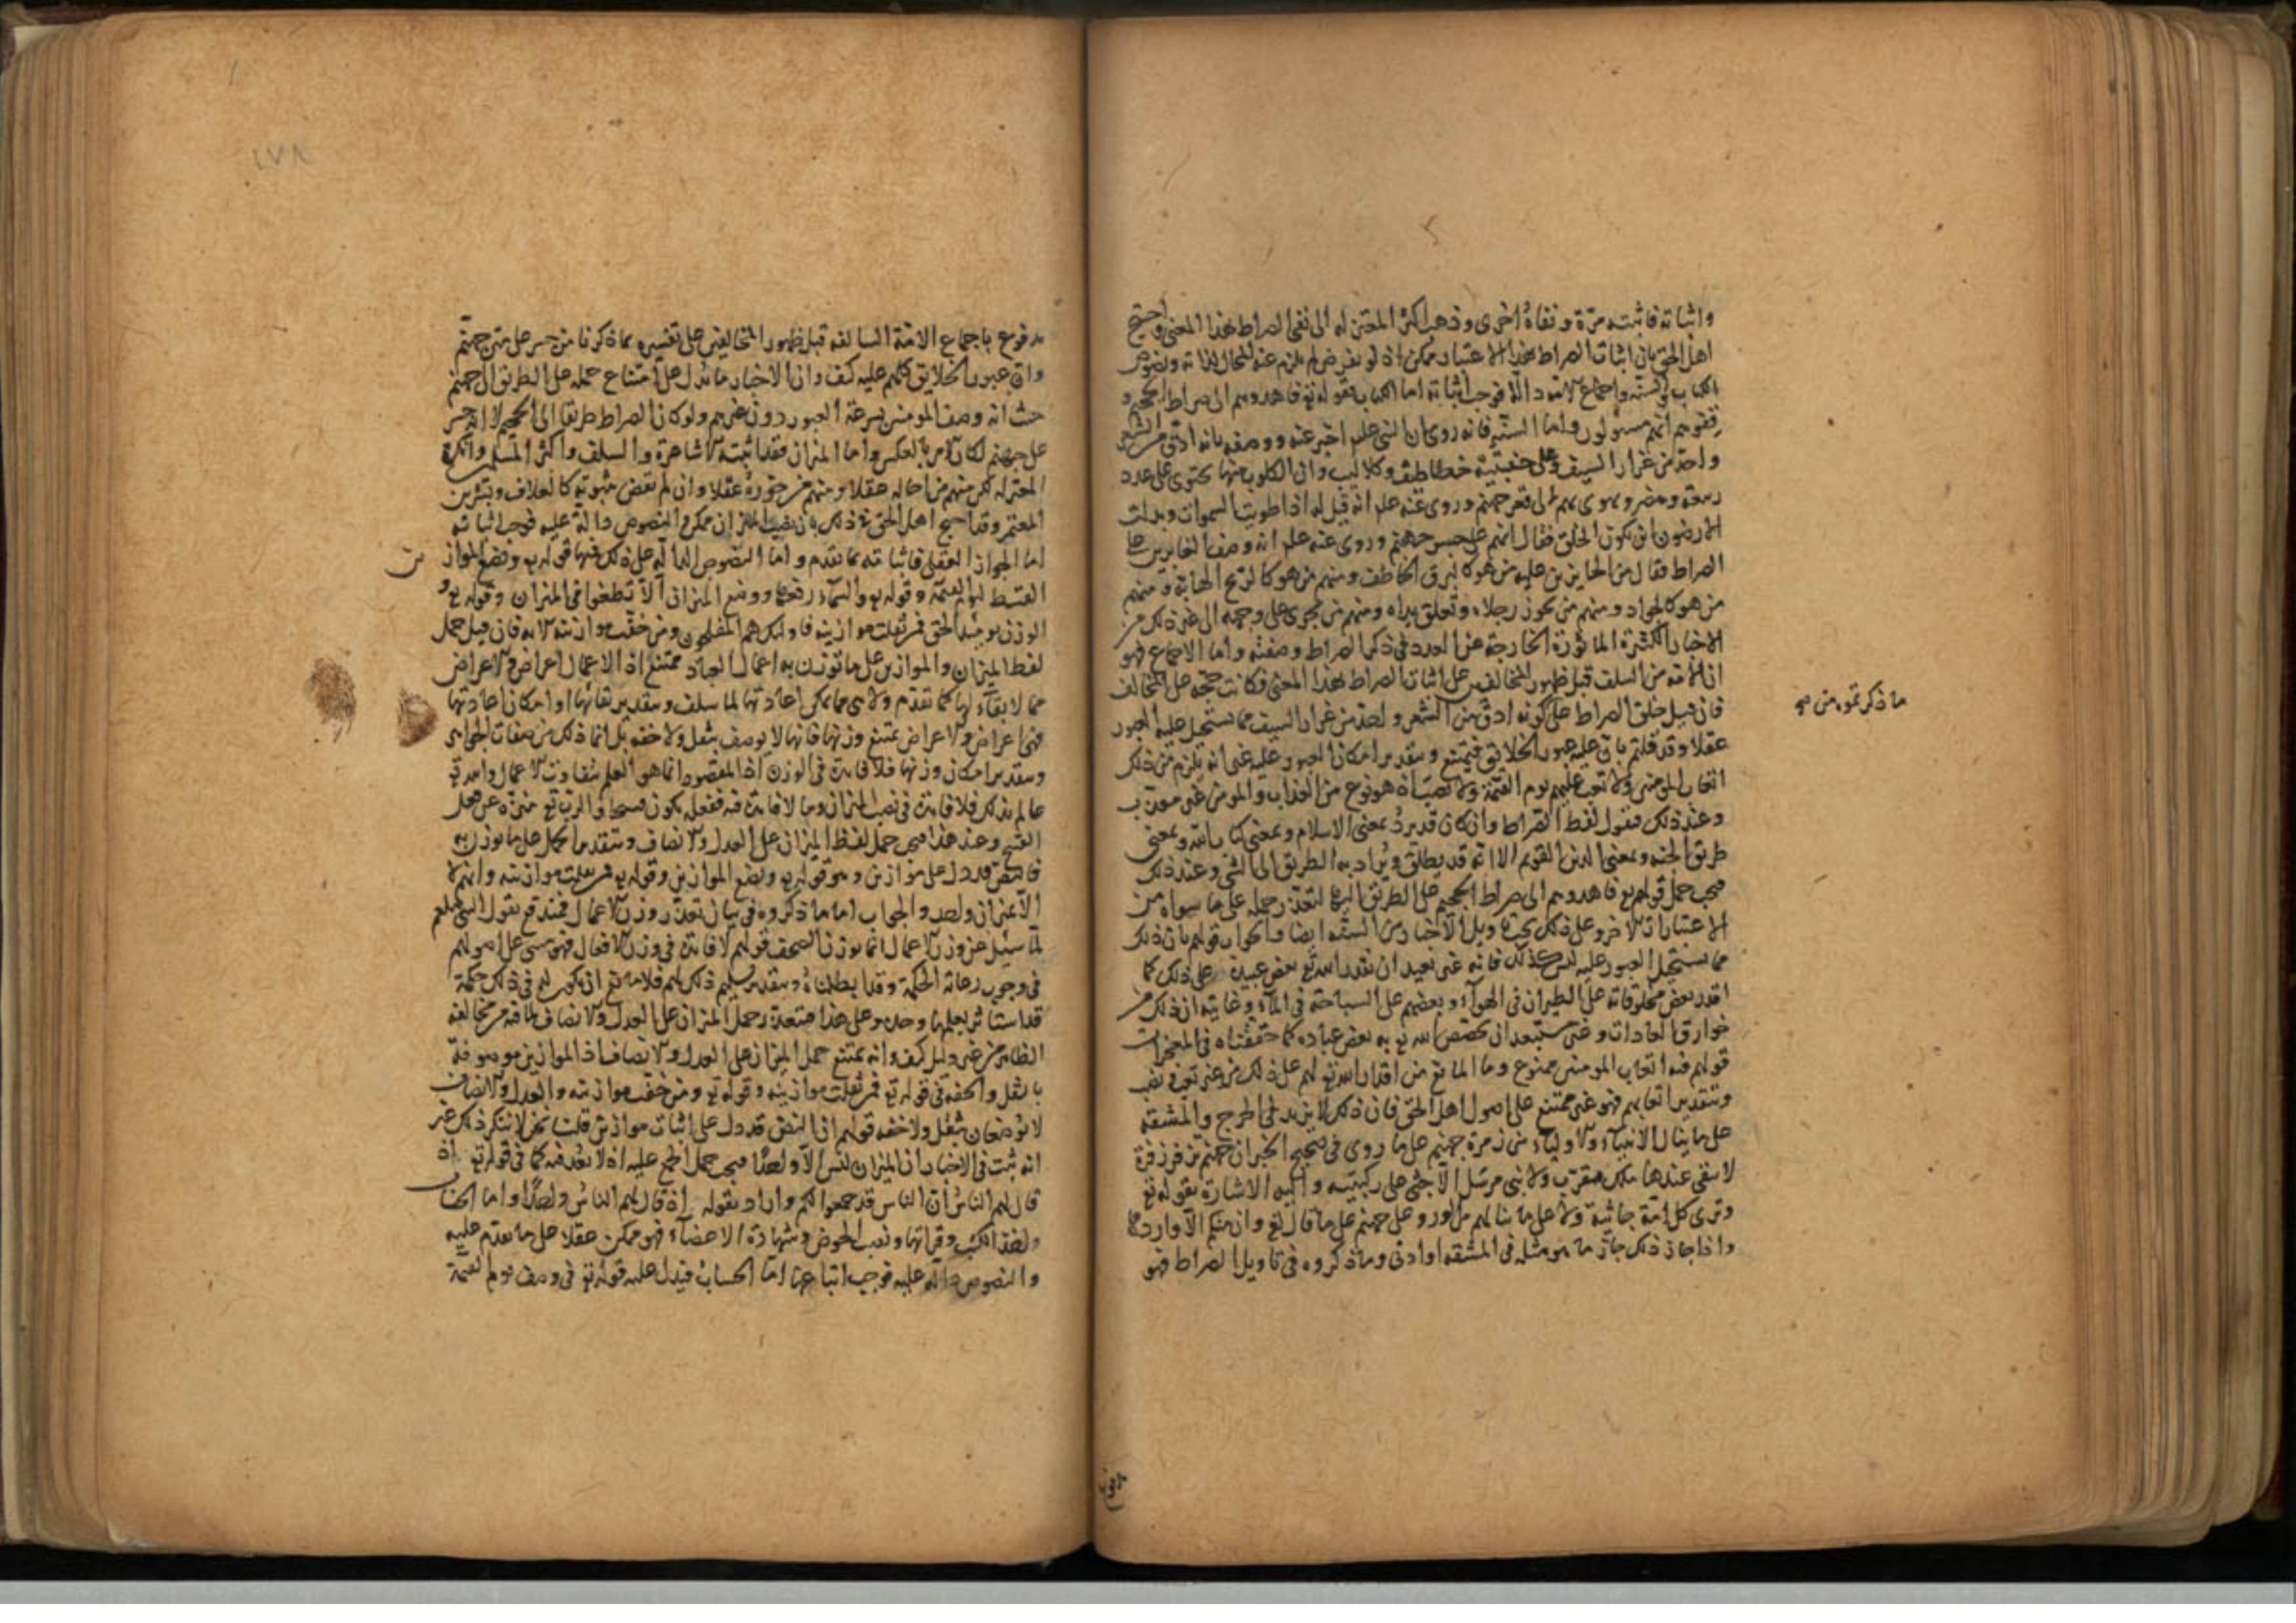 واثباته فاثبته مرّة ونفاهُ اخرى وذهب اكثر المعتزله الى نفى الصراط بهذا المعنى واحتج
اهل الحق بان اثبات الصراط بهذا الاعتبار ممكن اذ لو فرض لم يلزم عنه المحال لذاته ونصوص
الكتاب والسنّه واجماع الامه دالّة فوجب اثباته اما الكتاب فقوله تع فاهدوهم الى صراط الجحيم و
قفوهم انهم مسئولون واما السنّه فانه روى ان النبى علم اخبر عنه ووصفه بانه ادق من الشعر
واحدّ من غرار السيف وعلى حنفيتيه خطاطيف وكلاليب وان الكلوب منها يحتوى على عدد
ربيعة ومضر ويهوى بهم الى قعر جهنم وروى عنه علم انه قيل له اذا طويت السموات وبدلت
الارضون اين يكون الخلق فقال انهم على جسر جهنم وروى عنه علم انه وصف العابرين على
الصراط فقال من الجايزين عليه من هو كالبرق الخاطف ومنهم من هو كالريح الهابة ومنهم
من هو كالجواد ومنهم من تجوز رجلاه وتعلق يداه ومنهم من يجرى على وجهه الى غير ذلك من
الاخبار الكثيرة الماثورة الخارجة عن العدد فى ذكر الصراط وصفته واما الاجماع فهو
ان الامّة من السلف قبل ظهور المخالفين على اثبات الصراط بهذا المعنى فكانت حجّة على المخالف
فان قيل خلق الصراط على كونه ادق من الشعر واحدّ من غرار السيف مما يستحيل عليه العبور
عقلا وقد قلتم بان عليه عبور الخلايق فيمتنع وبتقدير امكان العبور عليه غير انه يلزم من ذلك
اتعاب المومنين ولا تعب عليهم يوم القيمة ولا نصب اذ هو نوع من العذاب والمومن غير معذب
وعند ذلك فنقول لفظ الصراط وان كان قد يردُ بمعنى الاسلام وبمعنى كتاب الله وبمعنى
طريق الجنه وبمعنى الدين القويم الا انه قد يطلق ويُراد به الطريق الى الشئ وعند ذلك
فيجب حمل قوله تع فاهدوهم الى صراط الجحيم على الطريق اليها لتعذر حمله على ما سواه من
الاعتبارات الاخر وعلى ذلك يجب تاويل الاخبار من السنّه ايضا والجواب قولهم بان ذلك
مما يستحيل العبور عليه ليس كذلك فانه غير بعيد ان يقدر الله تع بعض عبيده على ذلك كما
اقدر بعض مخلوقاته على الطيران فى الهوآء وبعضهم على السباحة فى المآء وغايته ان ذلك من
خوارق العادات وغير مستبعد ان يخصص الله تع به بعض عباده كما حققناه فى المعجزات
قولهم فيه اتعاب المومنين ممنوع وما المانع من اقدار الله تع لهم على ذلك من غير تعب ونصب
وبتقدير اتعابهم فهو غير ممتنع على اصول اهل الحق فان ذلك لا يزيد فى الحرج والمشقه
على ما ينال الانبيآء والاوليآء من زمرة جهنم على ما روى فى صحيح الخبر ان جهنم تزفر زفرة
لا يبقى عندها ملك مقرب ولا نبى مرسَل الّا جثى على ركبتيه واليه الاشارة بقوله تع
وترى كل امّة جاثية ولا على ما ينالهم من الورود على جهنم على ما قال تع وان منكم الّا واردها
واذا جاز ذلك جاز ما هو مثله فى المشقه او ادنى وما ذكروه فى تاويل الصراط فهو
ما ذكرتموه من صح
مدفوع
١٧٨
مدفوع باجماع الامّة السالفه قبل ظهور المخالفين على تفسيره بما ذكرنا من جسر على متن جهنّم
وان عبور الخلايق كلهم عليه كيف وان الاخبار ما يدل على امتناع حمله على الطريق الى جهنم
حيث انه وصف المومنين بسرعة العبور دون غيرهم ولو كان الصراط طريقا الى الجحيم لا انه جسر
على جهنم لكان الامر بالعكس واما الميزان فقد اثبته الاشاعرة والسلف واكثر المسلمين وانكره
المعتزله لكن منهم من احاله عقلا ومنهم من جوزهُ عقلا وان لم يقض بثبوته كالعلاف وبشر بن
المعتمر وقد احتج اهل الحق على ذلك بان نصب الميزان ممكن والنصوص دالة عليه فوجب اثباته
اما الجواز العقلى فاثباته بما تقدم واما النصوص الدالّه على ذلك فمنها قوله تع ونضع الموازين
القسط ليوم القيمة وقوله تع والسمآء رفعها ووضع الميزان الّا تطغوا فى الميزان وقوله تع و
الوزن يومئذ الحق فمن ثقلت موازينه فاولئك هم المفلحون ومن خفّت موازينه الايه فان قيل حمل
لفظ الميزان والموازين على ما توزن به اعمال العباد ممتنع اذ الاعمال اعراض والاعراض
مما لا بقآء لها كما تقدم ولا هى مما يمكن اعادتها لما سلف وبتقدير بقائها او امكان اعادتها
فهى اعراض والاعراض يمتنع وزنها فانها لا يوصف بثقل ولا خفه بل انما ذلك من صفات الجواهر
وبتقدير امكان وزنها فلا فايدة فى الوزن اذ المقصود انما هو العلم بتفاوت الاعمال والله تع
عالم بذلك فلا فايدة فى نصب الميزان وما لا فايدة فيه ففعله يكون قبيحا والرب تع منزّه عن فعل
القبيح وعند هذا فيجب حمل لفظ الميزان على العدل والانصاف وبتقدير الحمل على ما يوزن به
فالنص قد دل على موازين وهو قوله تع ونضع الموازين وقوله تع فمن ثقلت موازينه وانتم لا
الّا بميزان واحد والجواب اما ما ذكروه فى بيان تعذر وزن الاعمال فيندفع بقول النبى صلعم
لمّا سئل عن وزن الاعمال انما توزن الصحف قولهم لا فايدة فى وزن الافعال فهو مبنى على اصولهم
فى وجوب رعاية الحكمة وقد ابطلناهُ وبتقدير تسليم ذلك لهم فلا يمتنع ان يكون له فى ذلك حكمة
قد استاثر بعلمها وحده وعلى هذا فيتعذر حمل الميزان على العدل والانصاف لما فيه من مخالفه
الظاهر من غير دليل كيف وانه يمتنع حمل الميزان على العدل والانصاف اذ الموازين موصوفة
بالثقل والخفه فى قوله تع فمن ثقلت موازينه وقوله تع ومن خفّت موازينه والعدل والانصاف
لا يُوصفان بثقل ولا خفه قولهم ان النص قد دل على اثبات موازين قلنا نحن لا ننكر ذلك غير
انه ثبت فى الاخبار ان الميزان ليس الّا واحدًا فيجب حمل الجمع عليه اذ لا بُعد فيه كما فى قوله تع اذ
قال لهم الناسُ ان الناس قد جمعوا لكم واراد بقوله اذ قال لهم الناسُ واحدًا واما الحساب
واخذ الكتب وقراتها ونصب الحوض وشهادة الاعضآء فهو ممكن عقلا على ما تقدم عليه
والنصوص دالّه عليه فوجب اتباعها امّا الحساب فيدل عليه قوله تع فى وصف يوم القيمة